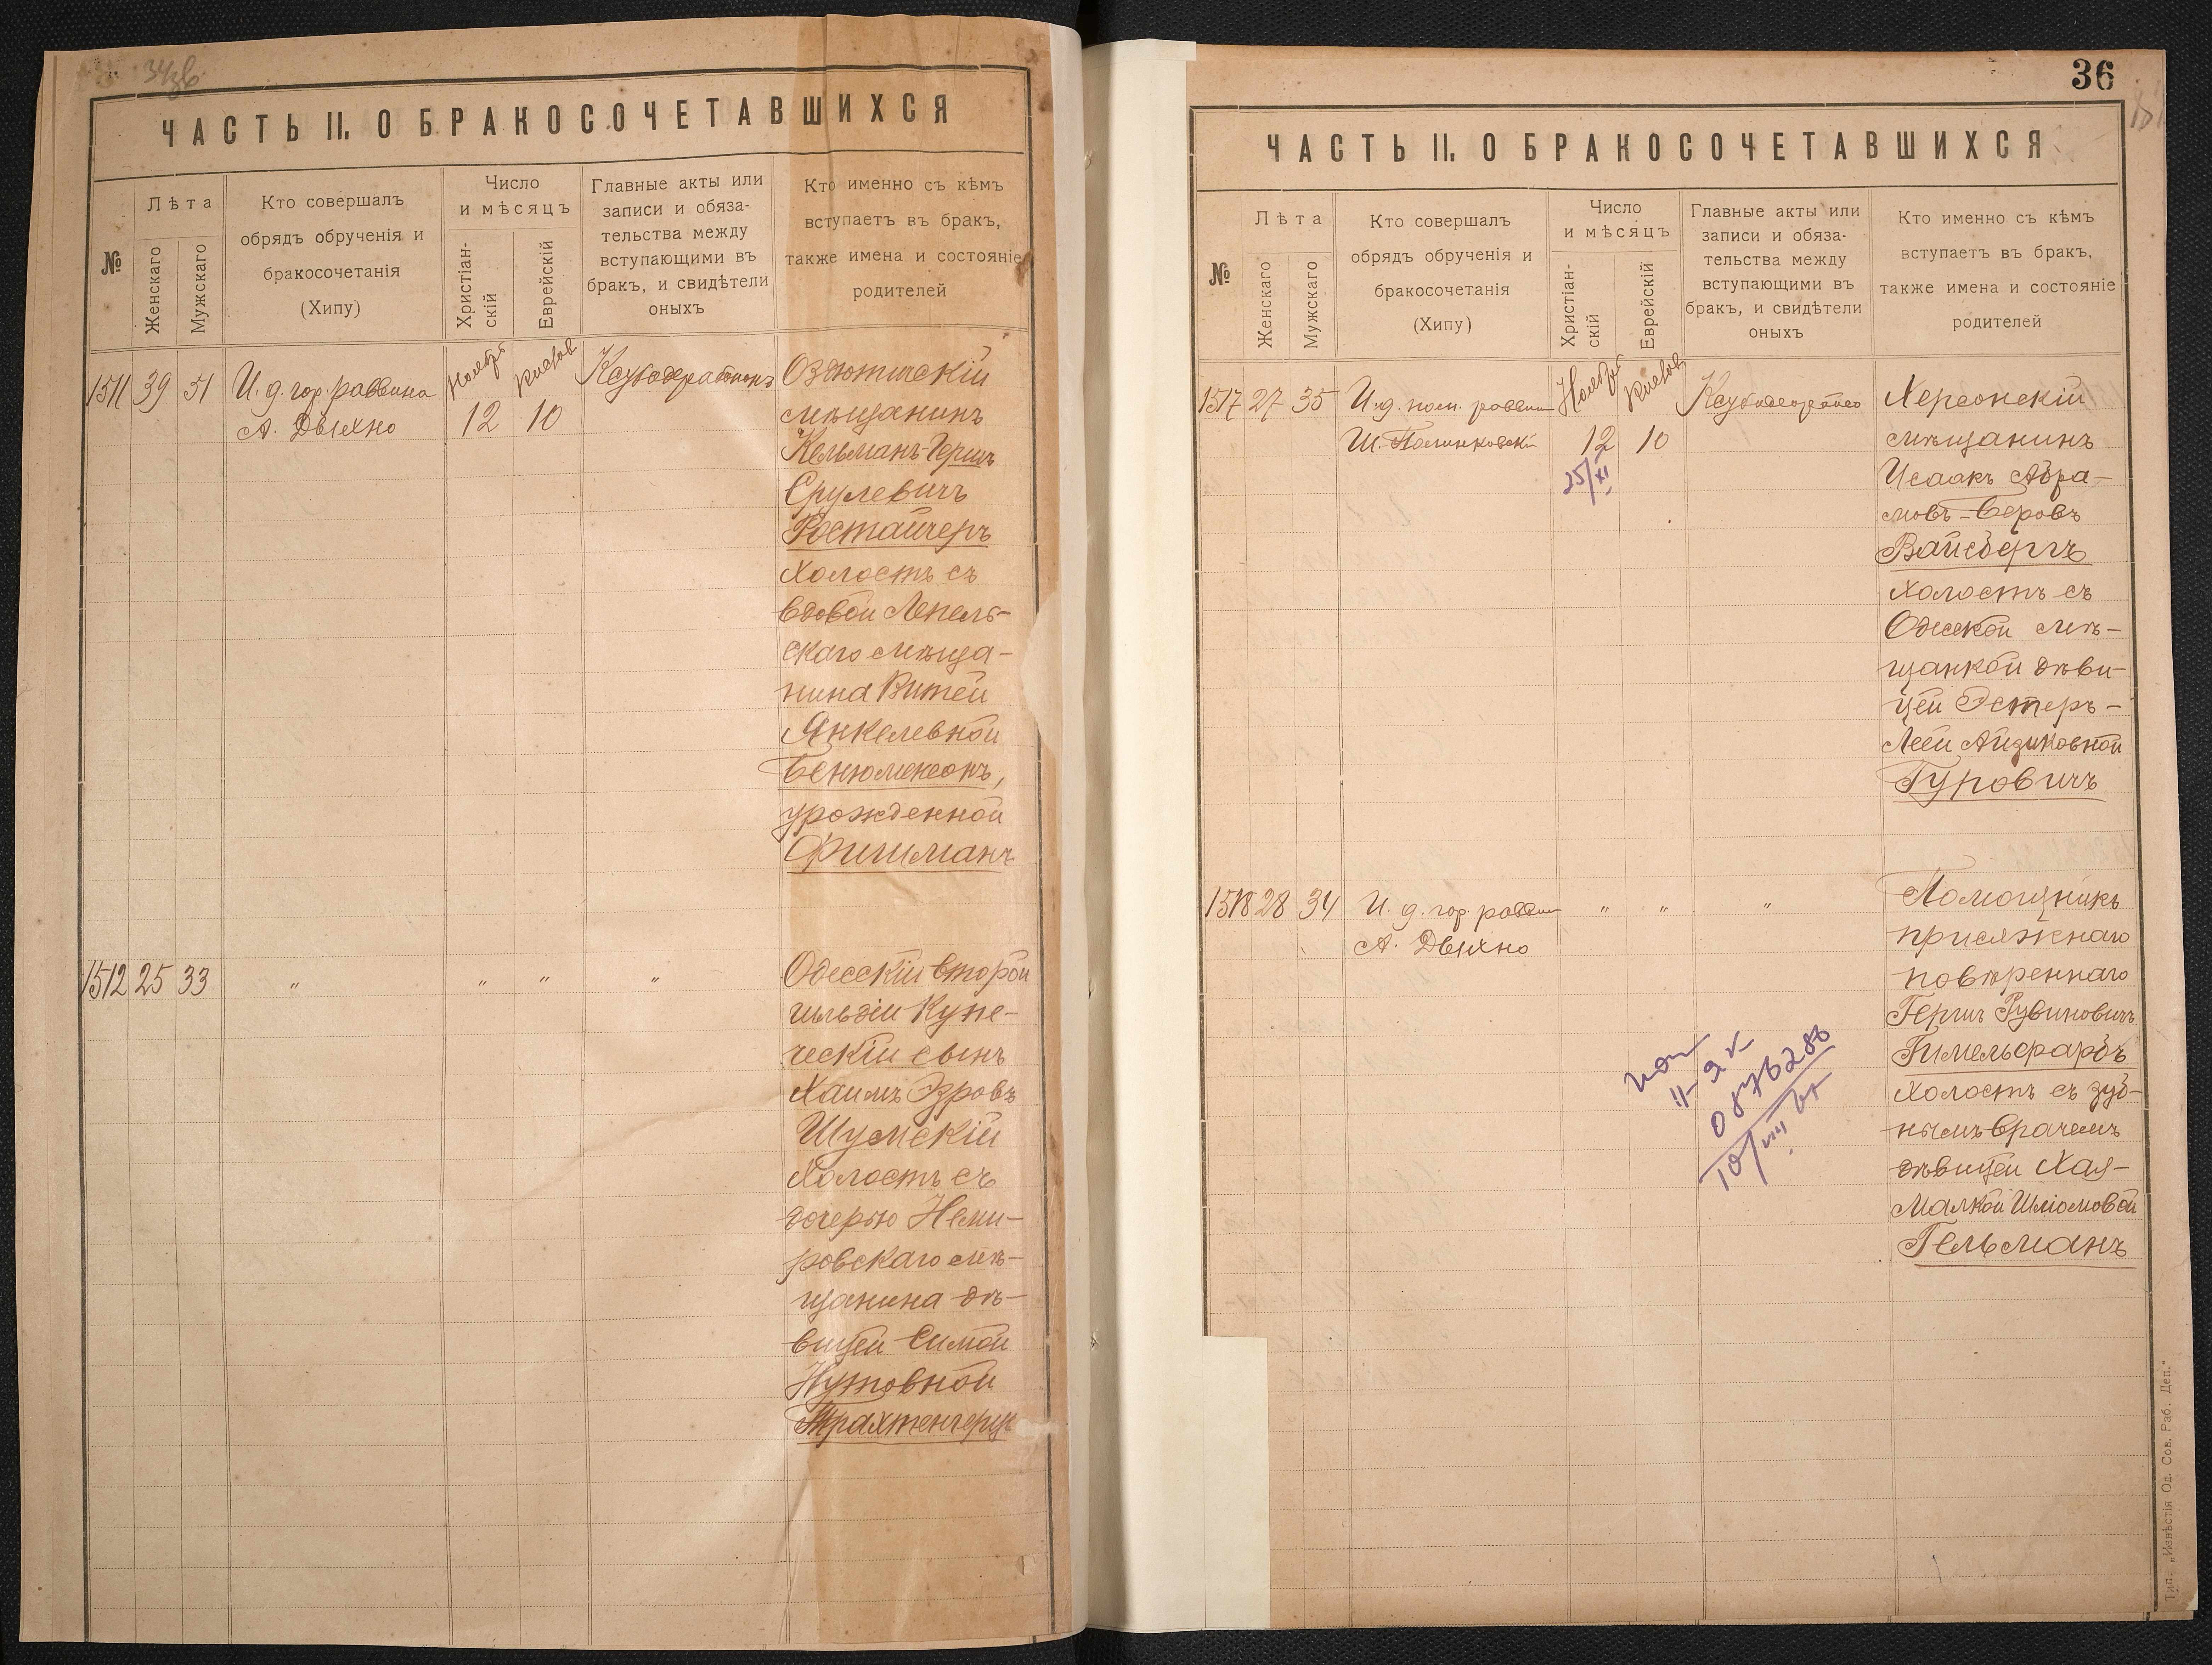 ЧАСТЬ II. О БРАКОСОЧЕТАВШИХСЯ
№
Лѣта
Женскаго
Мужскаго
Кто совершалъ
обрядъ обрученія и
бракосочетанія
(Хипу)
Число
и мѣсяцъ
Христіан-
скій
Еврейскій
Главные акты или
записи и обяза-
тельства между
вступающими въ
бракъ, и свидѣтели
оныхъ
Кто именно съ кѣмъ
вступаетъ въ бракъ,
также имена и состояніе
родителей
1511 39 51
И. д. гор. раввина
А. Дыхно
Ноябрь
12
Кислов
10
Озаютическій
мѣщанинъ
Кельманъ-Гершъ
Срулевичъ
Ростайчеръ
холостъ съ
вдовой Лепель-
скаго мѣща-
нина Витей
Янкелевной
Бенюменсонъ,
урожденной
Фишманъ
1512 25 33
"
" "
"
Одесскій второй
гильдіи Купе-
ческій сынъ
Хаимъ Эзровъ
Шумскій
Холостъ съ
дочерью Неми-
ровскаго мѣ-
щанина дѣ-
вицей Симой
Нутовной
Трахтенгерцъ
36
ЧАСТЬ II. О БРАКОСОЧЕТАВШИХСЯ
№
Лѣта
Женскаго
Мужскаго
Кто совершалъ
обрядъ обрученія и
бракосочетанія
(Хипу)
Число
и мѣсяцъ
Христіан-
скій
Еврейскій
Главные акты или
записи и обяза-
тельства между
вступающими въ
бракъ, и свидѣтели
оныхъ
Кто именно съ кѣмъ
вступаетъ въ бракъ,
также имена и состояніе
родителей
1517 27 35
И. д. пом. раввин
Ш. Полинковскій
Ноябрь
12
25/XI
Кислов
10
Херсонскій
мѣщанинъ
Исаакъ Абра-
мовъ-Беровъ
Вайсбергъ
холостъ съ
Одесской мѣ-
щанкой дѣви-
цей Эстеръ-
Леей Айзиковной
Гуровичъ
1518 28 34
И. д. гор. раввин
А. Дыхно
" "
"
Помощникъ
присяжнаго
повѣреннаго
Гершъ Рувиновичъ
Гимельфарбъ
холостъ съ зуб-
нымъ врачемъ
дѣвицей Хая-
Малкой Шліомовой
Гельманъ
Тип. „Извѣстія Од. Сов. Раб. Деп."